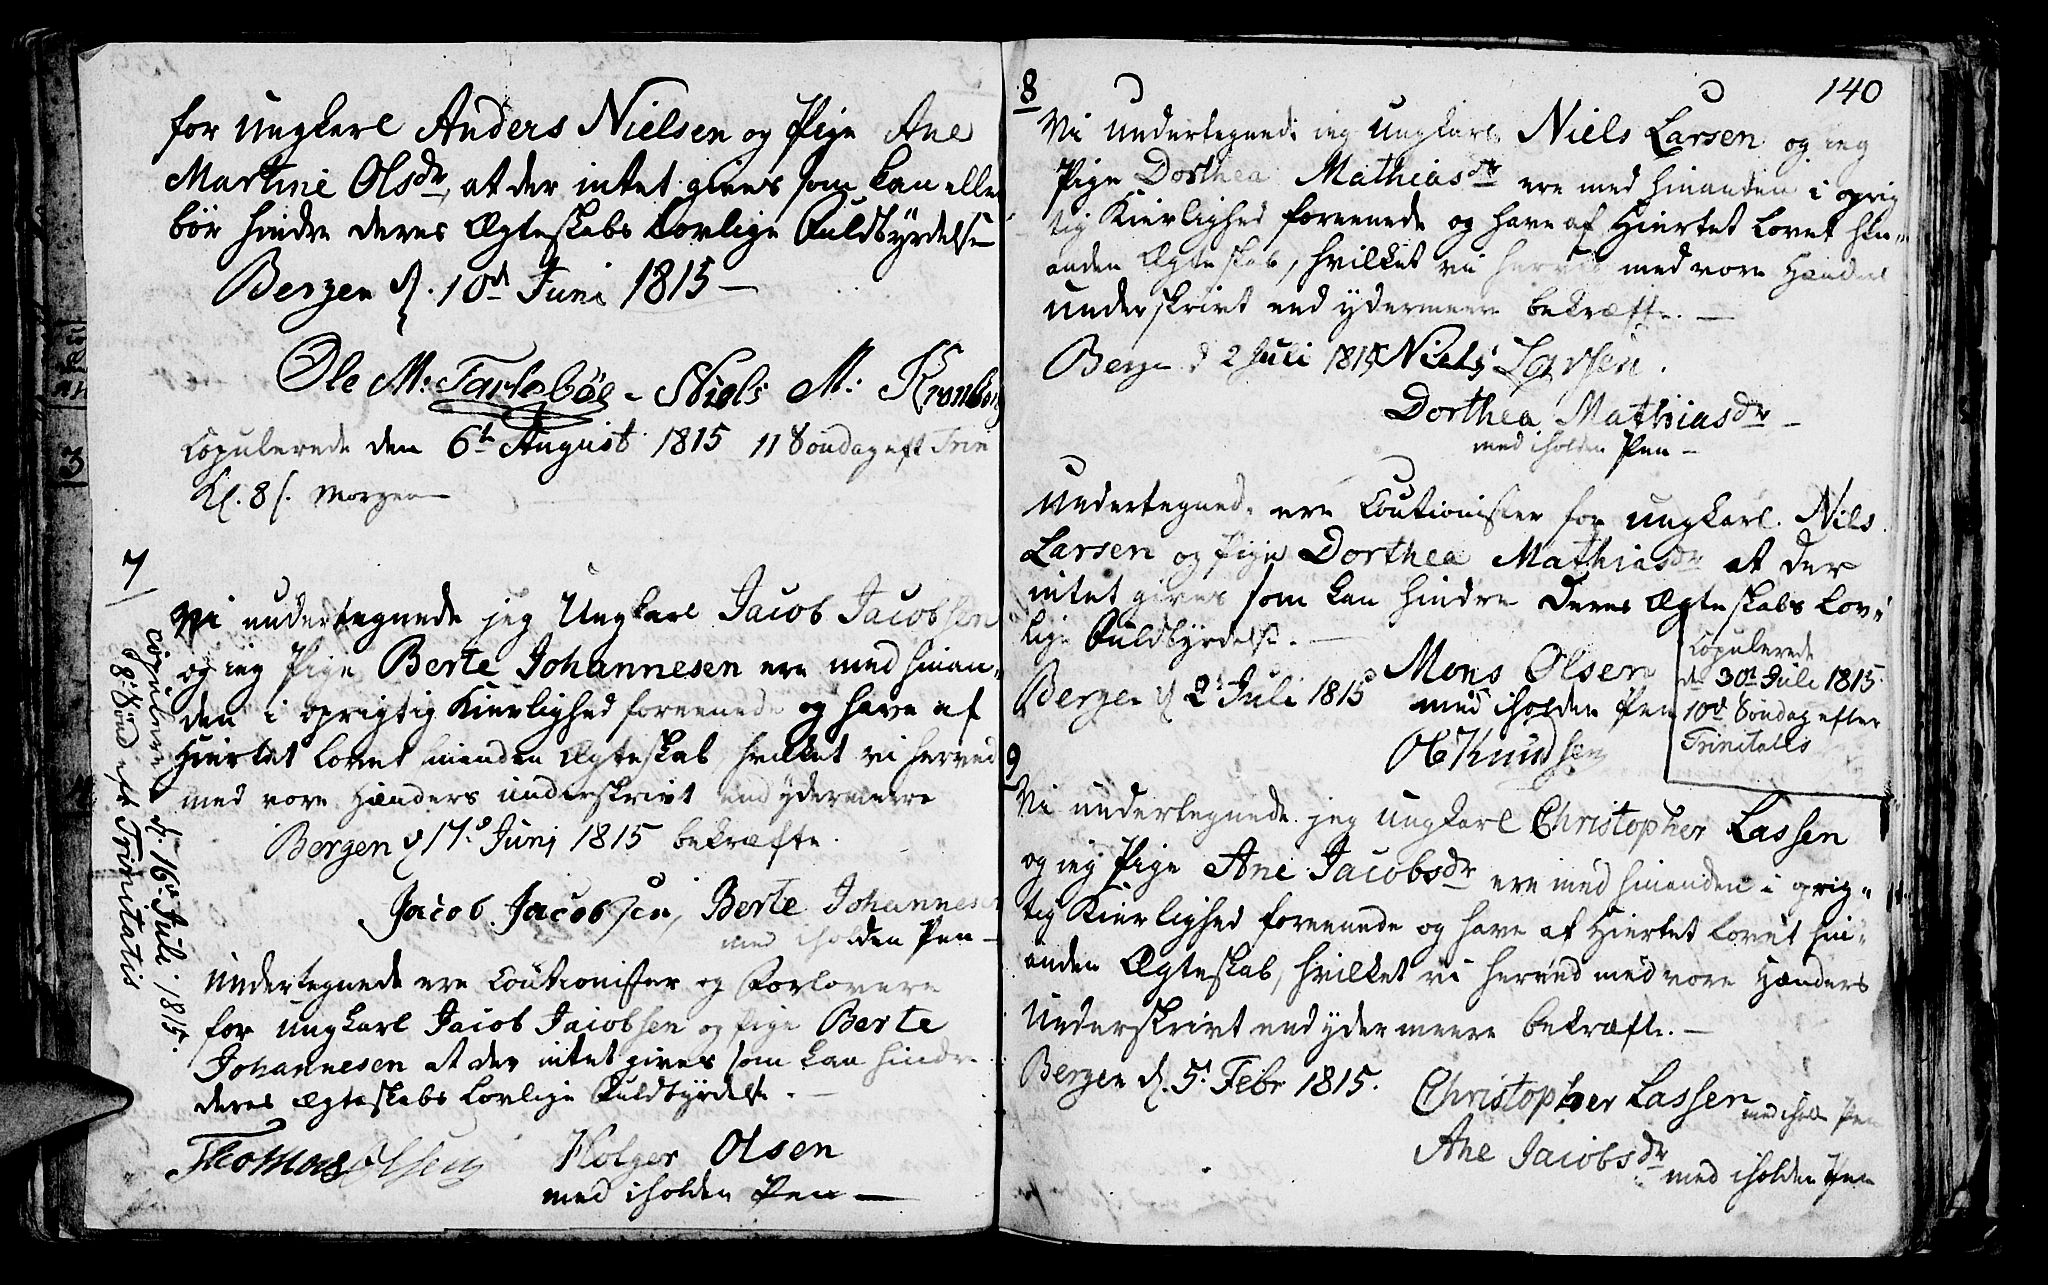 for Ungkarl Anders Nielsen og Pige Ane
Martine Olsdr, at der intet gives som kan eller
bör hindre deres Ægteskabs Lovlige Fuldbyrdelse
Bergen d. 10d Juni 1815 —
Ole M: - Niels M:
Copulerede den 6te August 1815 11 Söndag eft Trin
Kl. 8 s. Morgen
7
Vi undertegnede jeg Ungkarl Jacob Jacobsen
og ieg Pige Berte Johannesen ere med hinan-
den i oprigtig Kierlighed foreenede og have af
Hiertet lovet hinden Ægteskab, hvilket vi herved
med vore Hænders underskrivt end ydermeere
Bergen d 17d Junj 1815 bekræfte.
Jacob Jacobsen, Berte Johannesen
med iholden Pen -
Undertegnede ere Coutionister og Forlovere
for ungkarl Jacob Jacobsen og Pige Berte
Johannesen at der intet gives som kan hindre
deres Ægteskabs Lovlige Fuldbyrdelse. -
Thomas Olsen Holger Olsen
med iholden Pen —
Copulerede d. 16d Juli 1815.
8 Sönd eft Trinitatis
140
8
Vi undertegnede ieg Ungkarl Niels Larsen og ieg
Pige Dorthea Mathiasdr ere med hinanden i oprig
tig Kierlighed foreenede og have af Hiertet lovet hin-
anden Ægteskab, hvilket vi herved med vore Hænders
underskrivt end ydermeere bekræfte. —
Bergen d 2 Juli 1815 Niels Larsen.
Dorthea Mathiasdr -
med iholden Pen -
Undertegnede ere Coutionister for ungkarl Nils
Larsen og Pige Dorthea Mathiasdr at der
intet gives som kan hindre deres Ægteskabs Lov-
lige Fuldbyrdelse. —
Bergen d 2d Juli 1815 Mons Olsen
med iholden Pen
Ole Knudsen
Copulerede
d 30d Juli 1815.
10d Söndag efter
Trinitatis
9
Vi undertegnede jeg ungkarl Christopher Lassen
og ieg Pige Ane Jacobsdr ere med hinanden i oprig-
tig Kierlighed foreenede og have af Hiertet lovet hin-
anden Ægteskab, hvilket vi herved med vore Hænders
underskrivt end ydermeere bekræfte. —
Bergen d. 5. Febr 1815. Christopher Lassen med iholden Pen
Ane Jacobsdr med iholden Pen